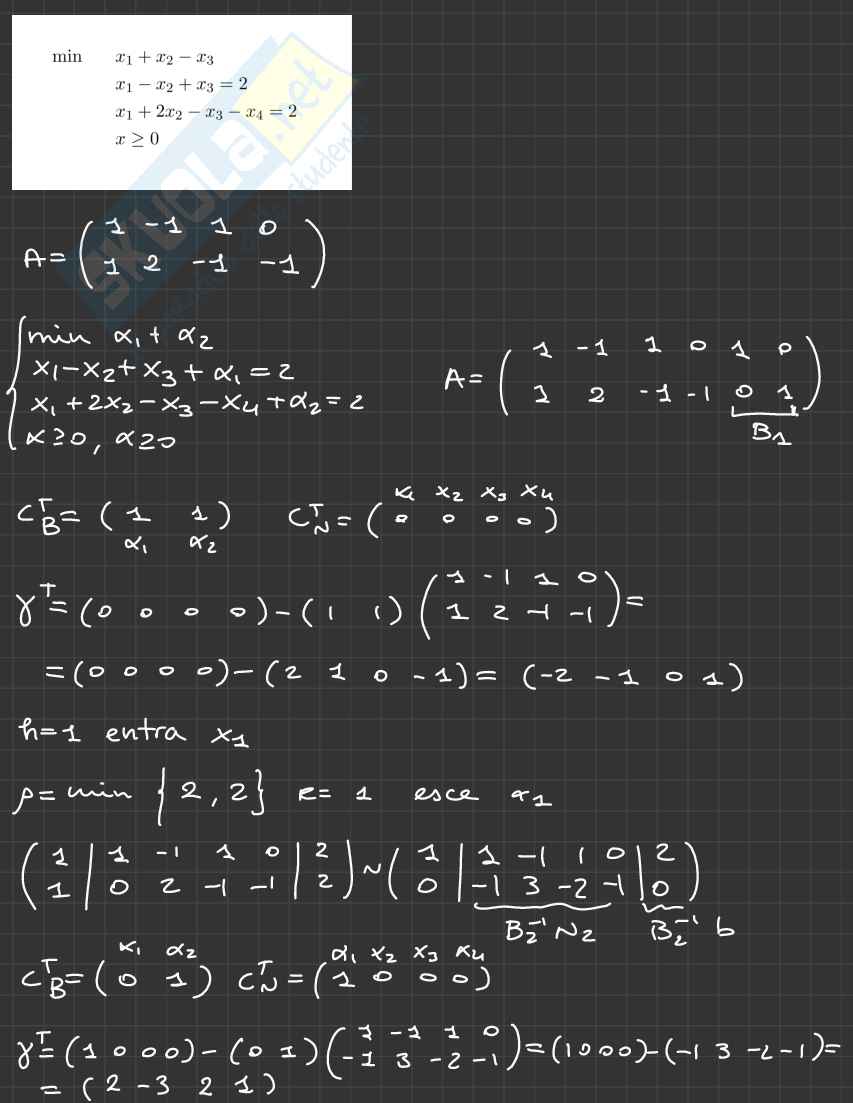 min x₁ + x₂ − x₃
x₁ − x₂ + x₃ = 2
x₁ + 2x₂ − x₃ − x₄ = 2
x ≥ 0
SKUOLA.net
A = ( 1 -1 1 0
1 2 -1 -1 )
min α₁ + α₂
x₁ - x₂ + x₃ + α₁ = 2
x₁ + 2x₂ - x₃ - x₄ + α₂ = 2
x ≥ 0, α ≥ 0
A = ( 1 -1 1 0 1 0
1 2 -1 -1 0 1 )
B₁
C_B^T = ( 1 1 ) C_N^T = ( 0 0 0 0 )
α₁ α₂ x₁ x₂ x₃ x₄
γ^T = (0 0 0 0) - (1 1) ( 1 -1 1 0
1 2 -1 -1 ) =
= (0 0 0 0) - (2 1 0 -1) = (-2 -1 0 1)
h=1 entra x₁
ρ = min { 2, 2 } k = 1 esce α₁
( 1 | 1 -1 1 0 | 2 ) ~ ( 1 | 1 -1 1 0 | 2 )
( 1 | 0 2 -1 -1 | 2 ) ( 0 | -1 3 -2 -1 | 0 )
B₂⁻¹ N₂ B₂⁻¹ b
x₁ α₂ α₁ x₂ x₃ x₄
C_B^T = ( 0 1 ) C_N^T = ( 1 0 0 0 )
γ^T = (1 0 0 0) - (0 1) ( 1 -1 1 0
-1 3 -2 -1 ) = (1 0 0 0) - (-1 3 -2 -1) =
= ( 2 -3 2 1 )